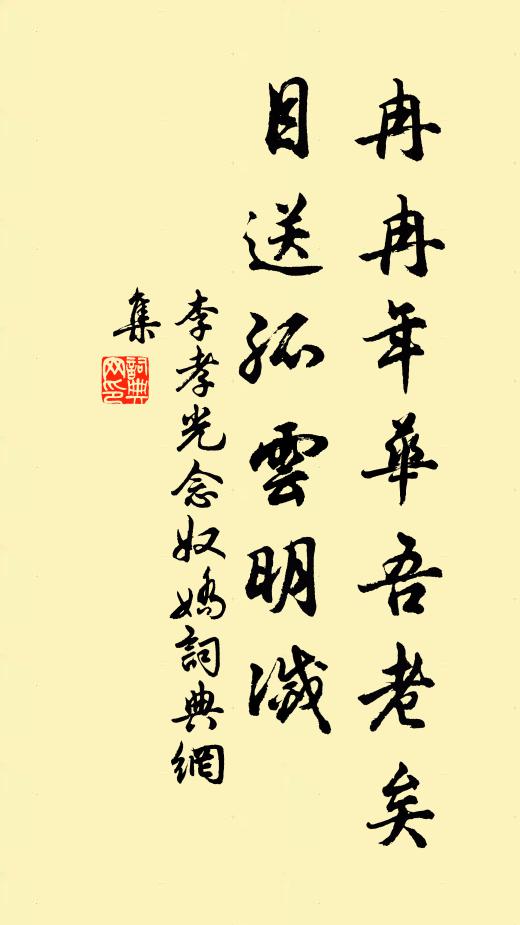 冉冉年華吾老矣
目送孤雲明滅
李孝光念奴嬌詞典網
集
詞典網印